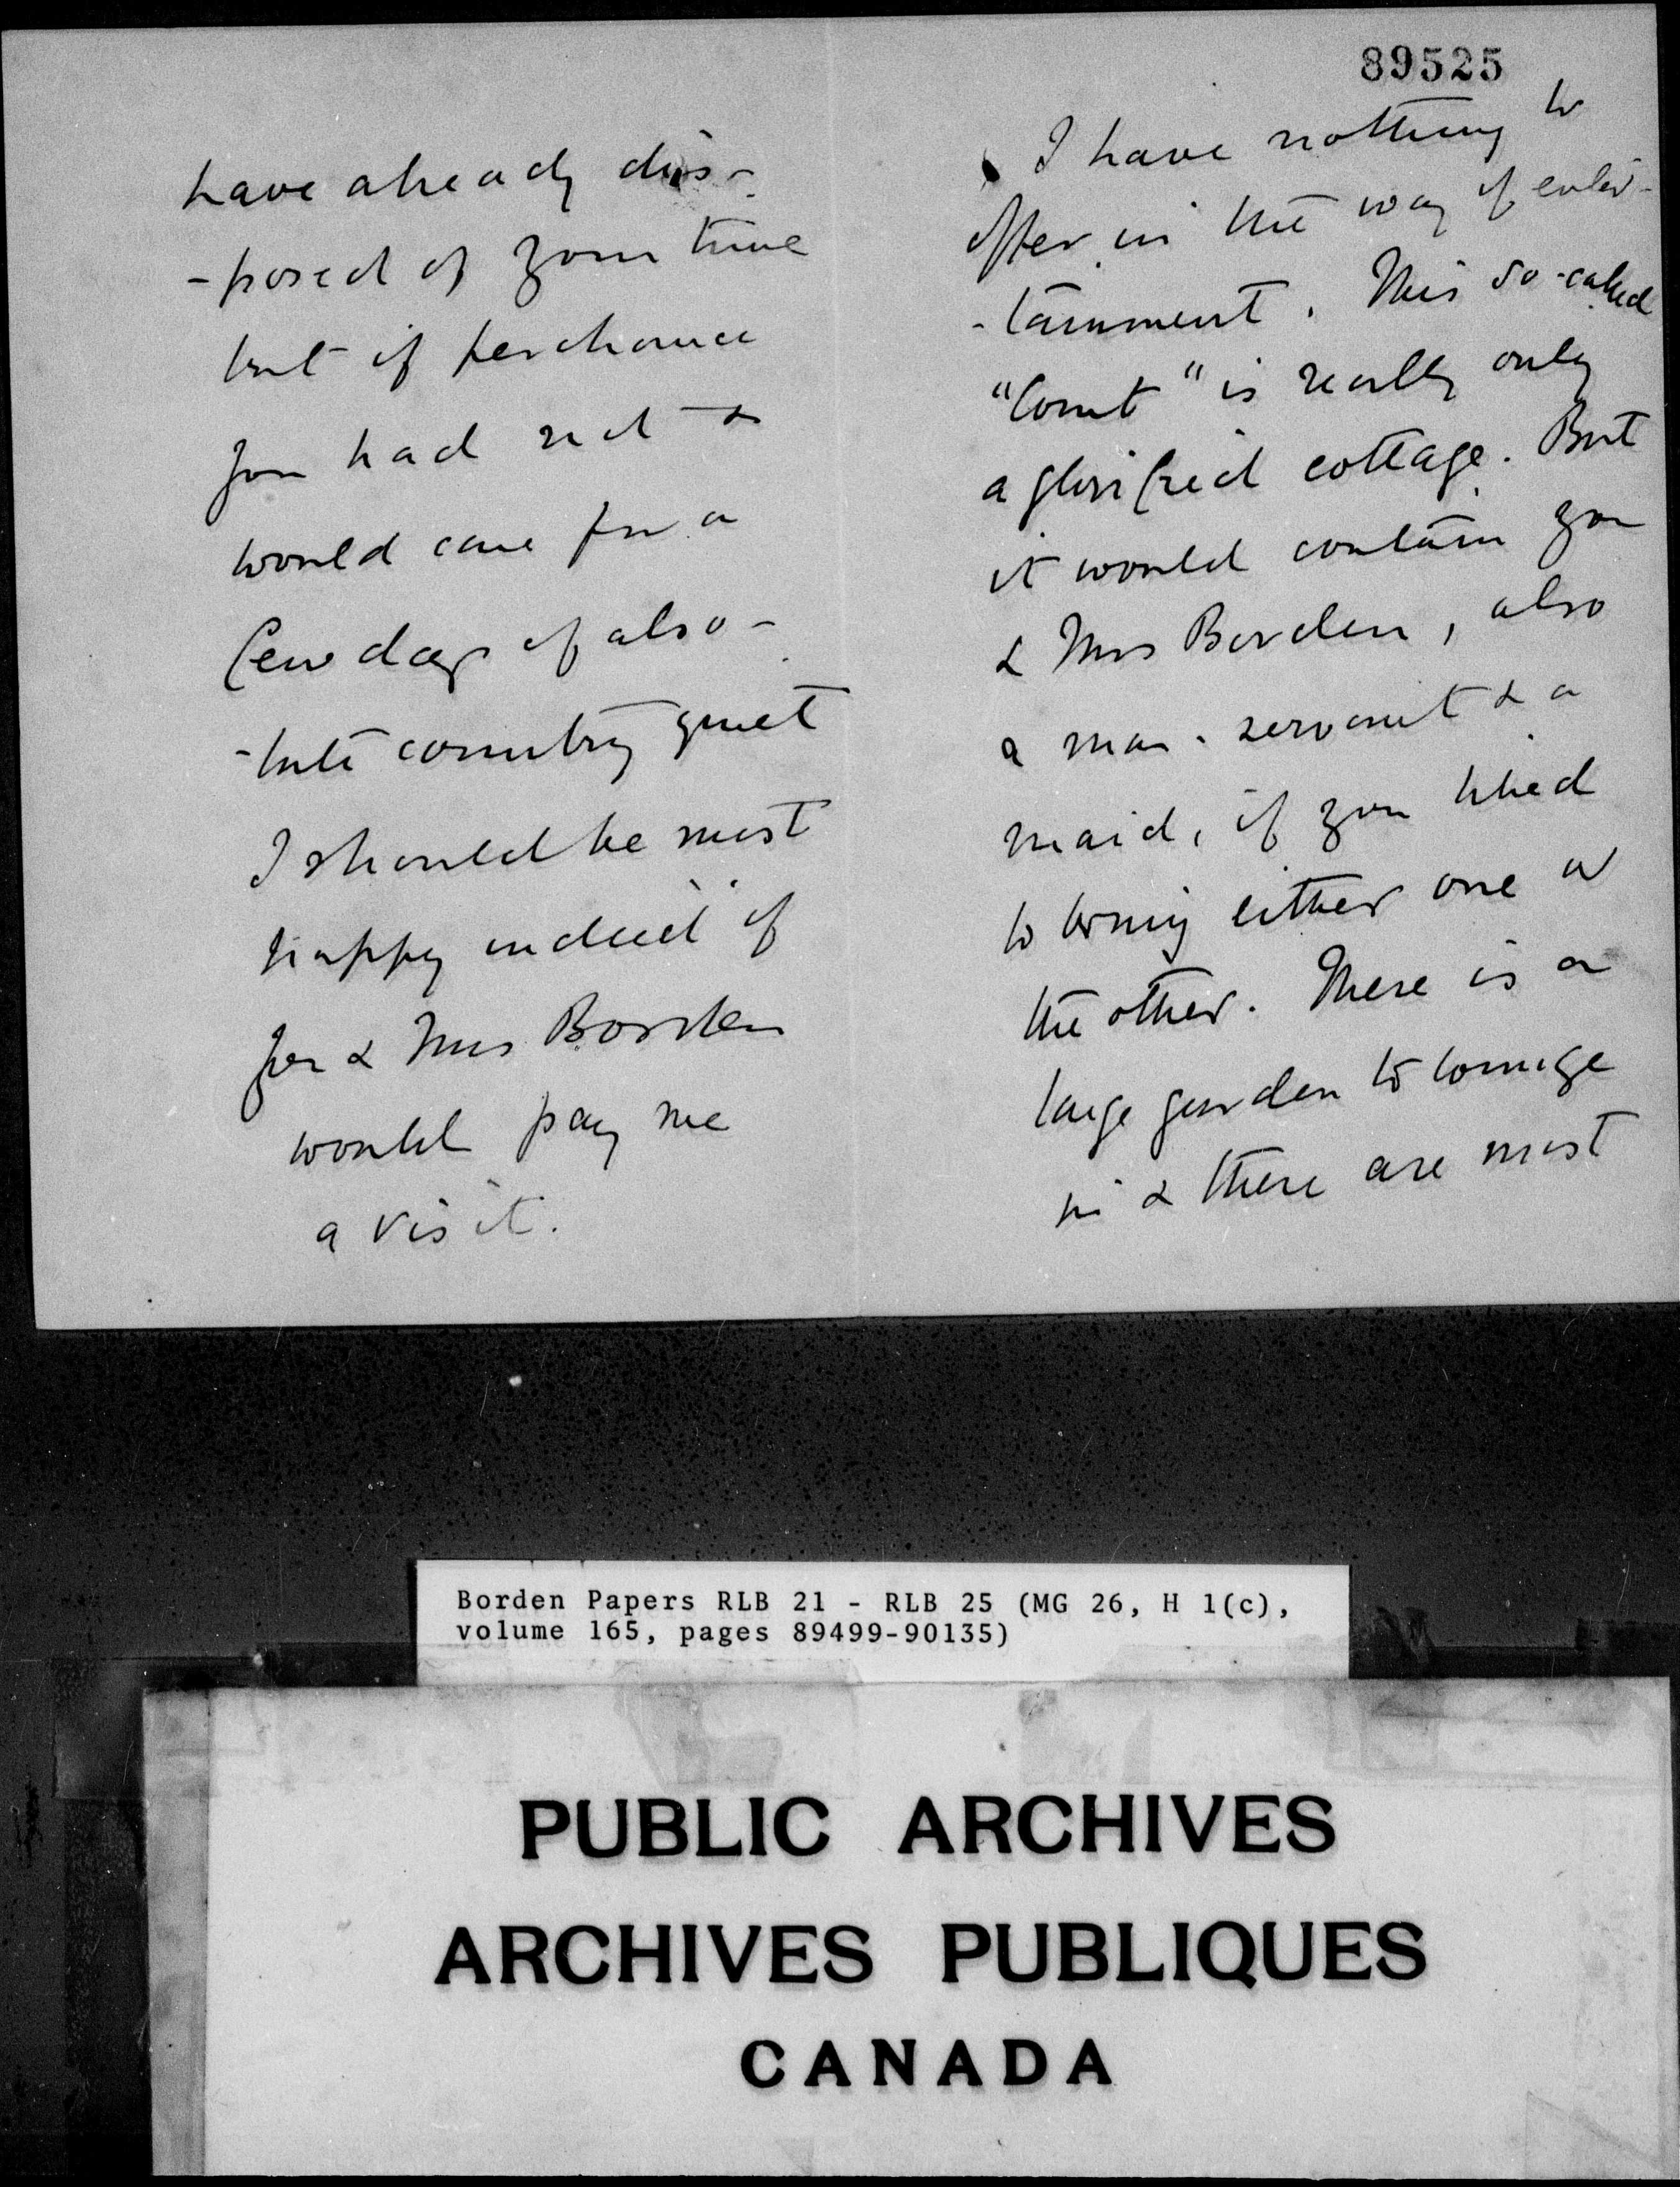 have already dis-
-posed of your time
but if perchance
you had not &
would care for a
few days of abso-
-lute country quiet
I should be most
happy indeed if
you & Mrs Borden
would pay me
a visit.
89525
I have nothing to
offer in the way of enter-
-tainment. This so-called
"Court" is really only
a glorified cottage. But
it would contain you
& Mrs Borden, also
a man-servant & a
maid, if you liked
to bring either one or
the other. There is a
large garden to lounge
in & there are most
Borden Papers RLB 21 - RLB 25 (MG 26, H 1(c),
volume 165, pages 89499-90135)
PUBLIC ARCHIVES
ARCHIVES PUBLIQUES
CANADA